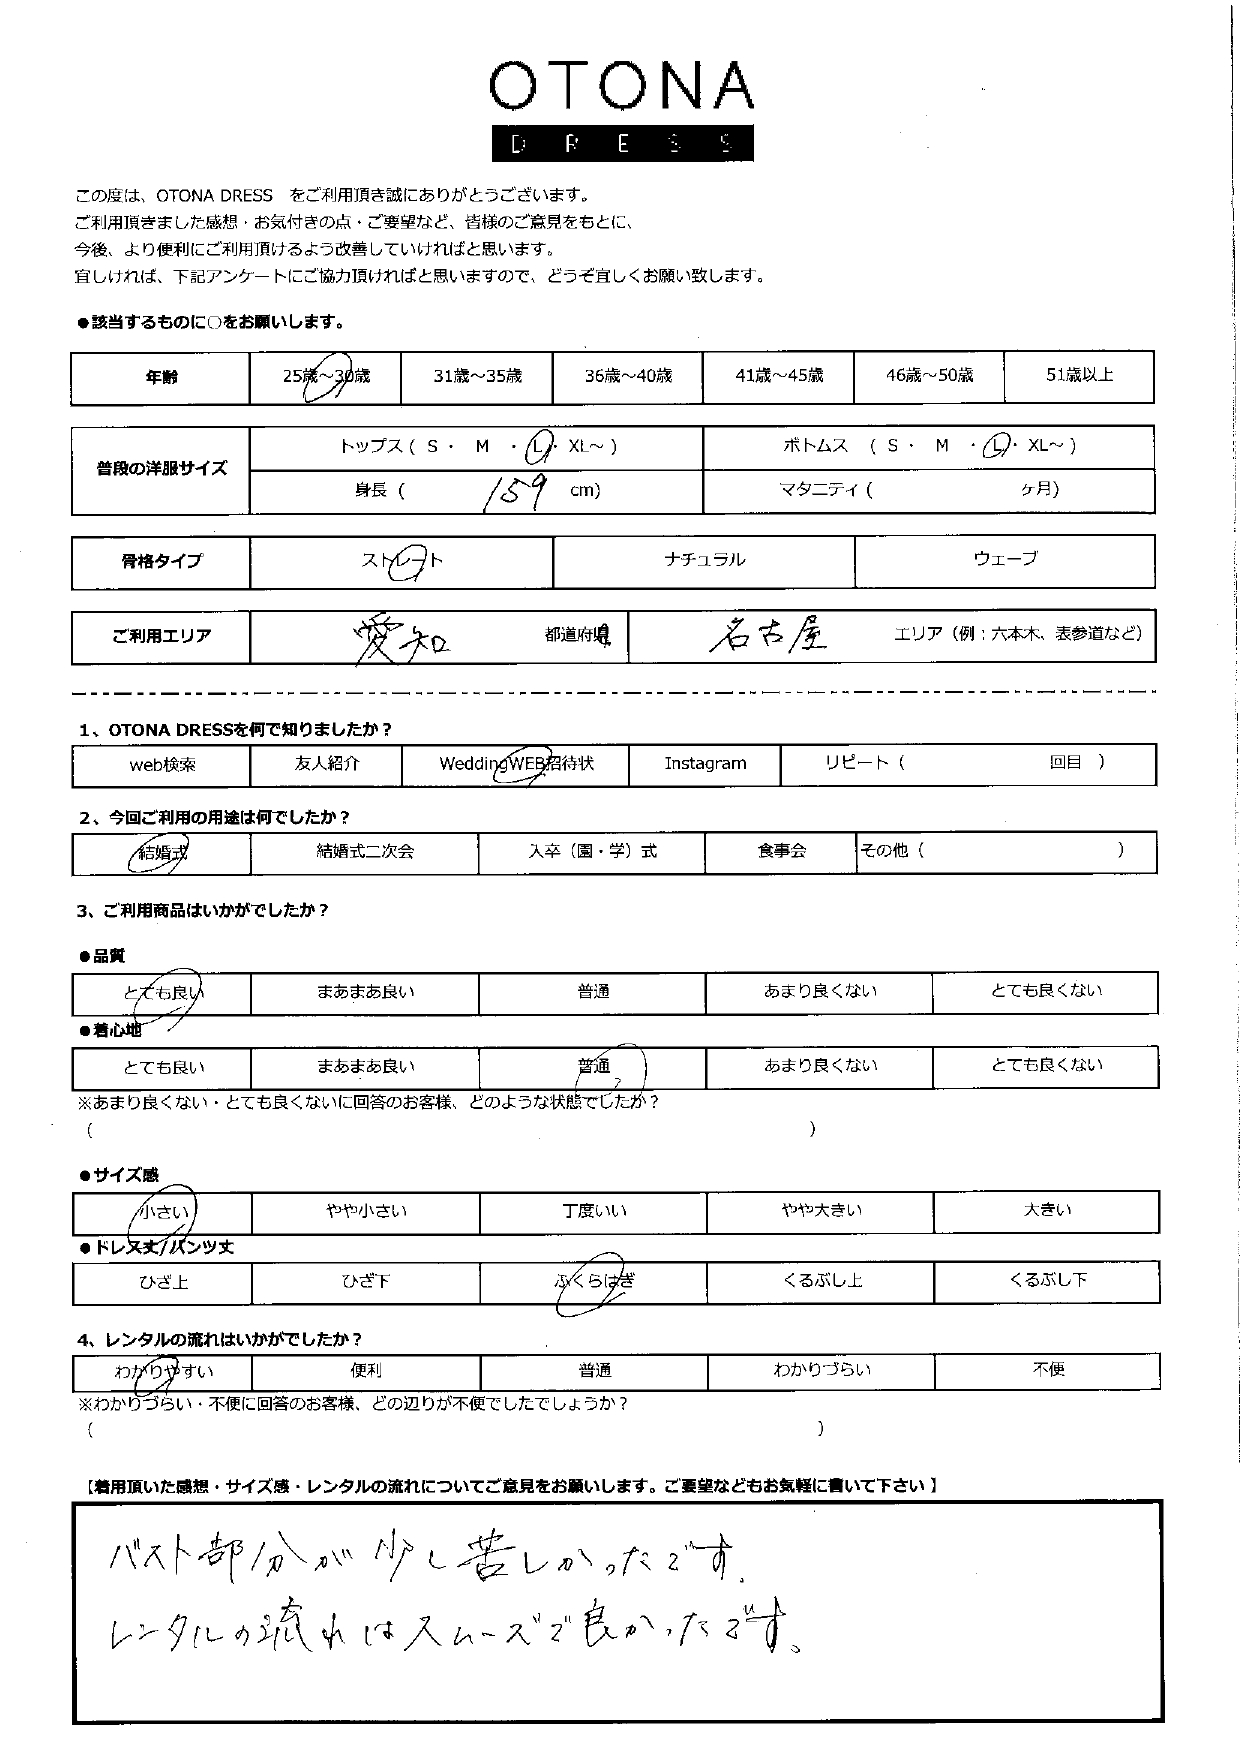 OTONA
DRESS
この度は、OTONA DRESS　をご利用頂き誠にありがとうございます。
ご利用頂きました感想・お気付きの点・ご要望など、皆様のご意見をもとに、
今後、より便利にご利用頂けるよう改善していければと思います。
宜しければ、下記アンケートにご協力頂ければと思いますので、どうぞ宜しくお願い致します。
●該当するものに○をお願いします。
年齢 25歳～30歳 31歳～35歳 36歳～40歳 41歳～45歳 46歳～50歳 51歳以上
普段の洋服サイズ トップス ( S ・ M ・ L ・ XL～ ) ボトムス ( S ・ M ・ L ・ XL～ )
身長 ( 159 cm) マタニティ ( ヶ月)
骨格タイプ ストレート ナチュラル ウェーブ
ご利用エリア 愛知 都道府県 名古屋 エリア（例：六本木、表参道など）
1、OTONA DRESSを何で知りましたか？
web検索 友人紹介 WeddingWEB招待状 Instagram リピート（ 回目 ）
2、今回ご利用の用途は何でしたか？
結婚式 結婚式二次会 入卒（園・学）式 食事会 その他（ ）
3、ご利用商品はいかがでしたか？
●品質
とても良い まあまあ良い 普通 あまり良くない とても良くない
●着心地
とても良い まあまあ良い 普通 あまり良くない とても良くない
※あまり良くない・とても良くないに回答のお客様、どのような状態でしたか？
( )
●サイズ感
小さい やや小さい 丁度いい やや大きい 大きい
●ドレス丈/パンツ丈
ひざ上 ひざ下 ふくらはぎ くるぶし上 くるぶし下
4、レンタルの流れはいかがでしたか？
わかりやすい 便利 普通 わかりづらい 不便
※わかりづらい・不便に回答のお客様、どの辺りが不便でしたでしょうか？
( )
【着用頂いた感想・サイズ感・レンタルの流れについてご意見をお願いします。ご要望などもお気軽に書いて下さい】
バスト部分が少し苦しかったです。
レンタルの流れはスムーズで良かったです。